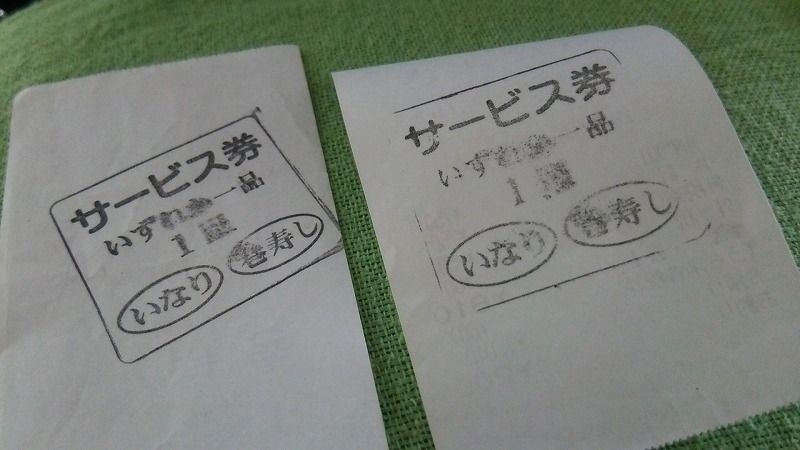 サービス券
いずれか一品
1皿
いなり 巻寿し
サービス券
いずれか一品
1皿
いなり 巻寿し